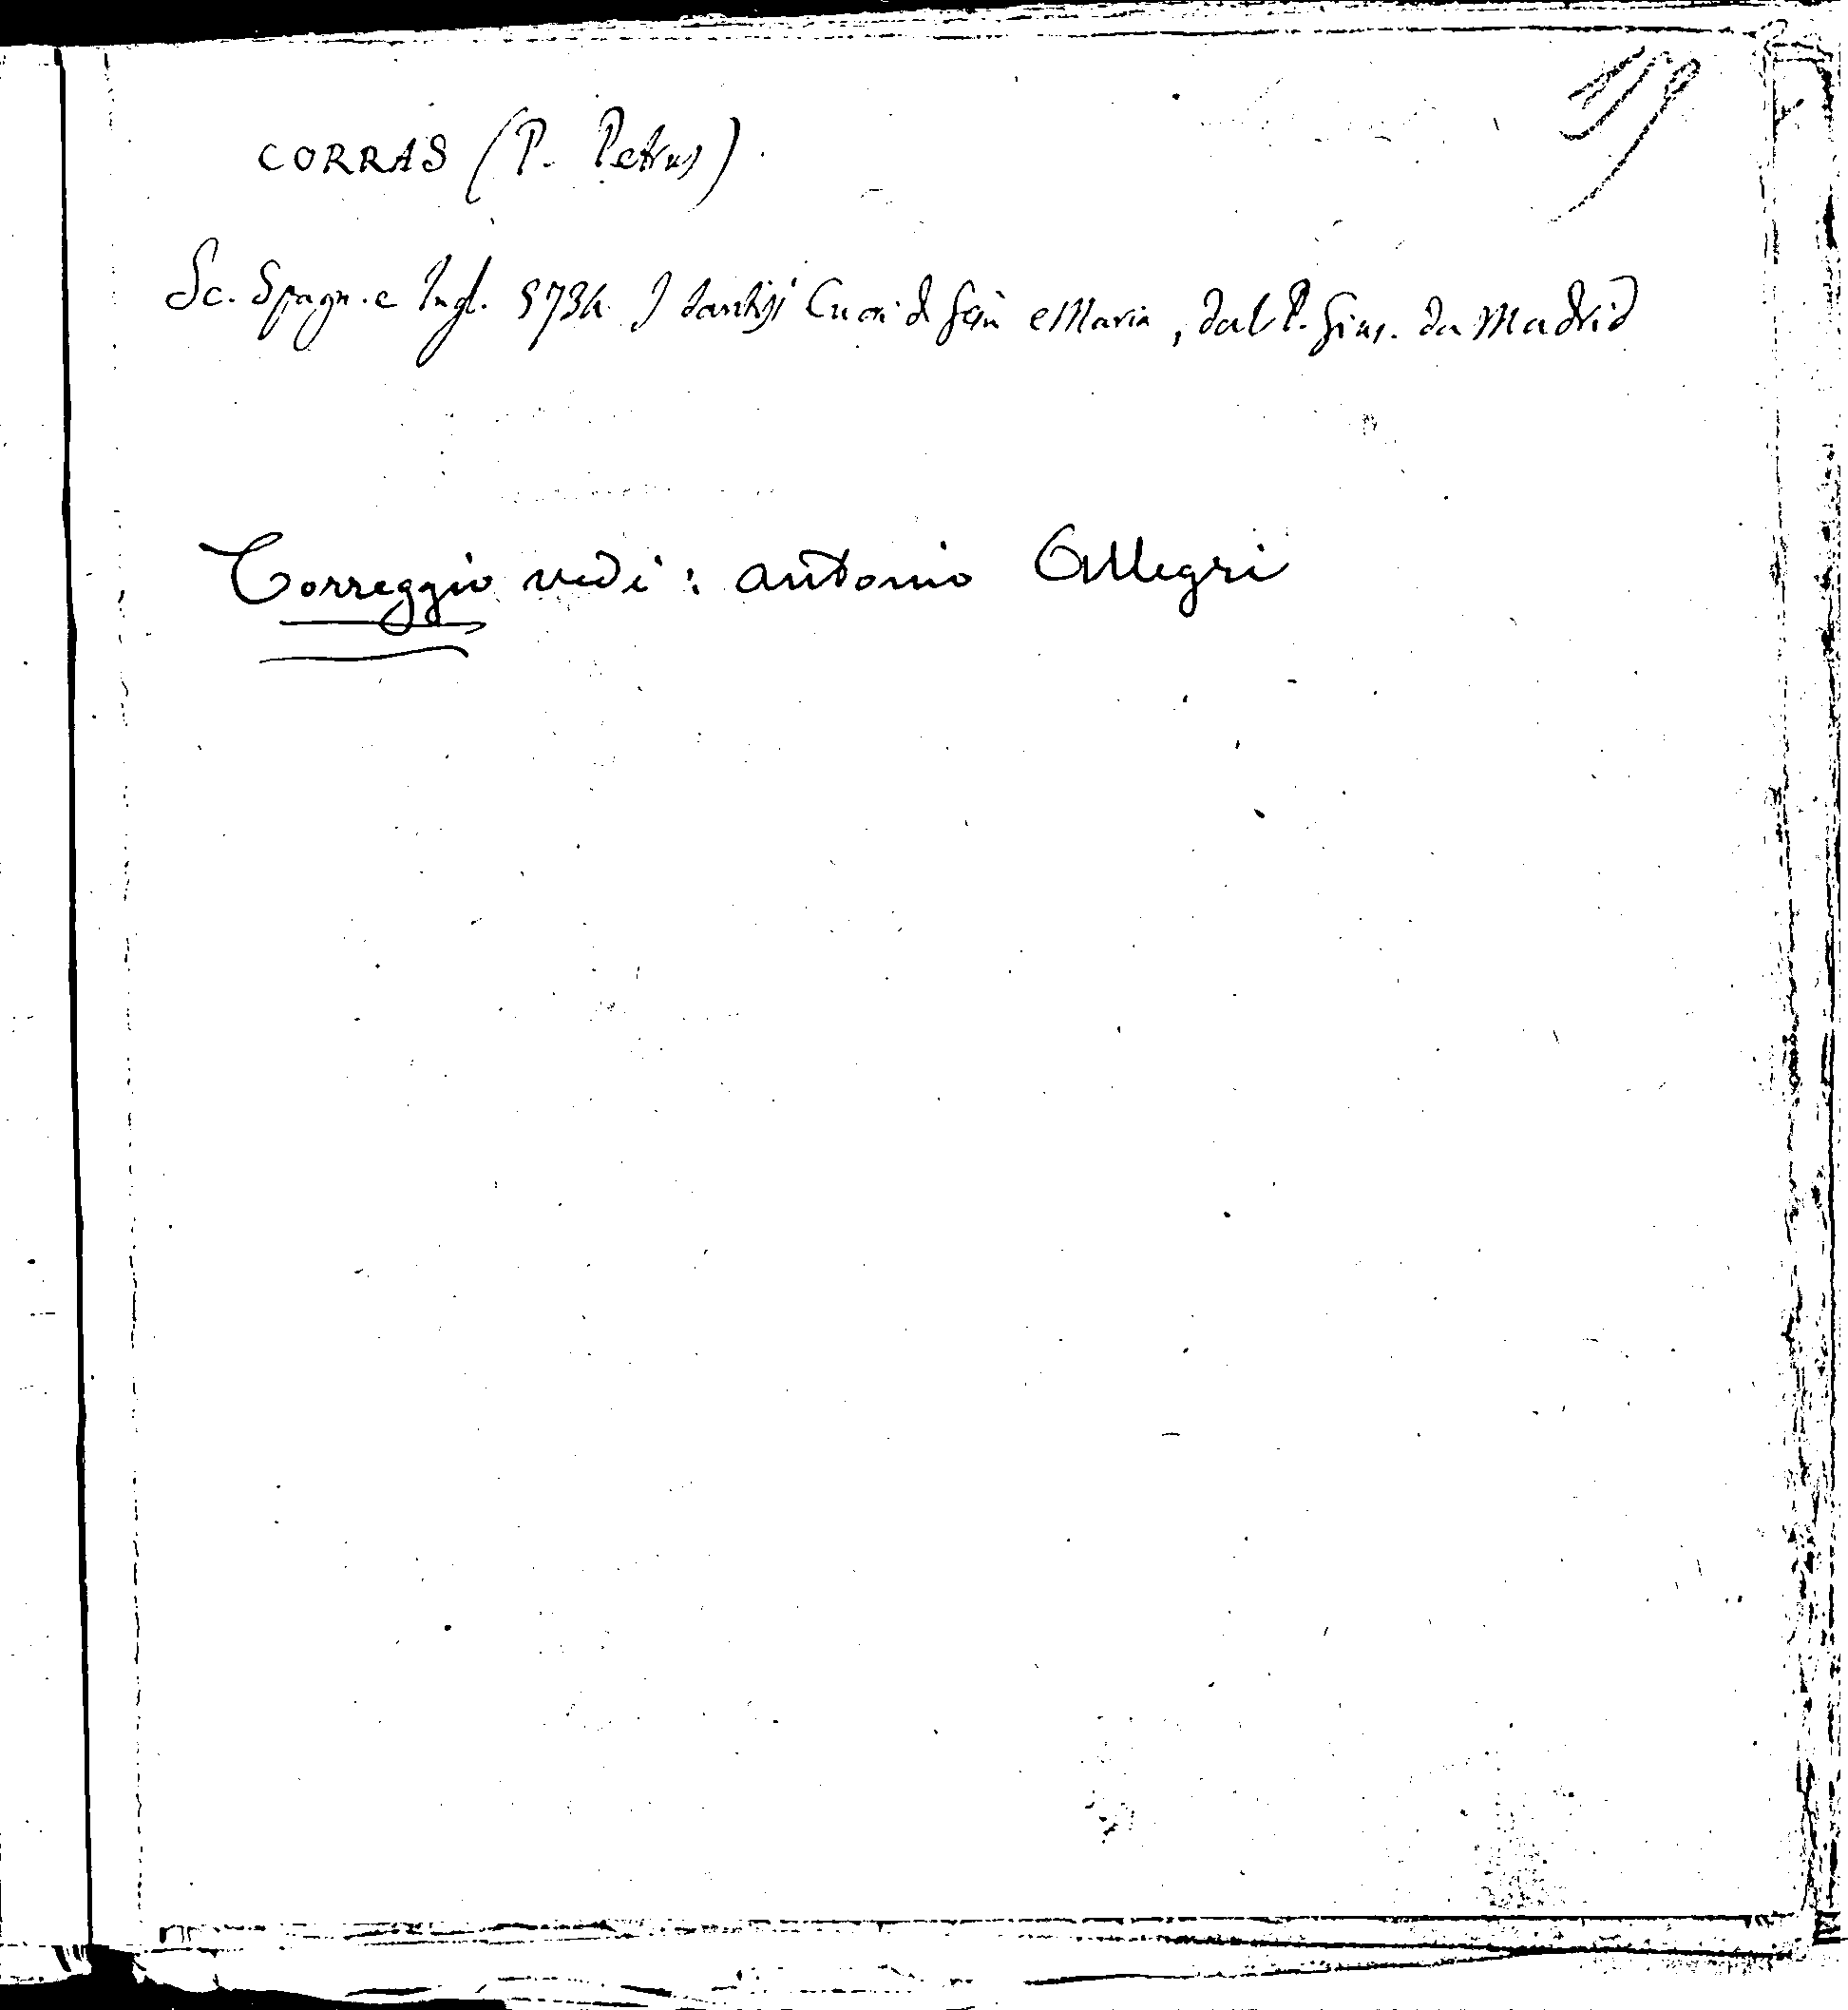 159
CORRAS (P. Petrus).
Sc. Spagn. e Ingl. 573h I Santissi Cuori di Gesù e Maria, dal P. Gius. da Madrid
Correggio vedi: Antonio Allegri